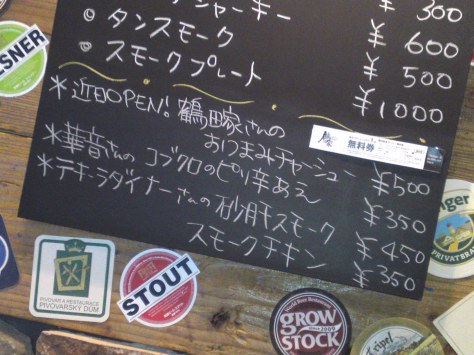 ジャーキー ¥300
◎ タンスモーク ¥600
◎ スモークプレート ¥500
¥1000
*近日OPEN! 鶴田家さんの
おつまみチャーシュー ¥500
無料券
*華音さんの コブクロのピリ辛あえ ¥350
*テキーラダイナーさんの 砂肝スモーク ¥450
スモークチキン ¥350
PIVOVAR & RESTAURACE
PIVOVARSKÝ DŮM
STOUT
GROW
SINCE 2009
STOCK
PRIVATBRA